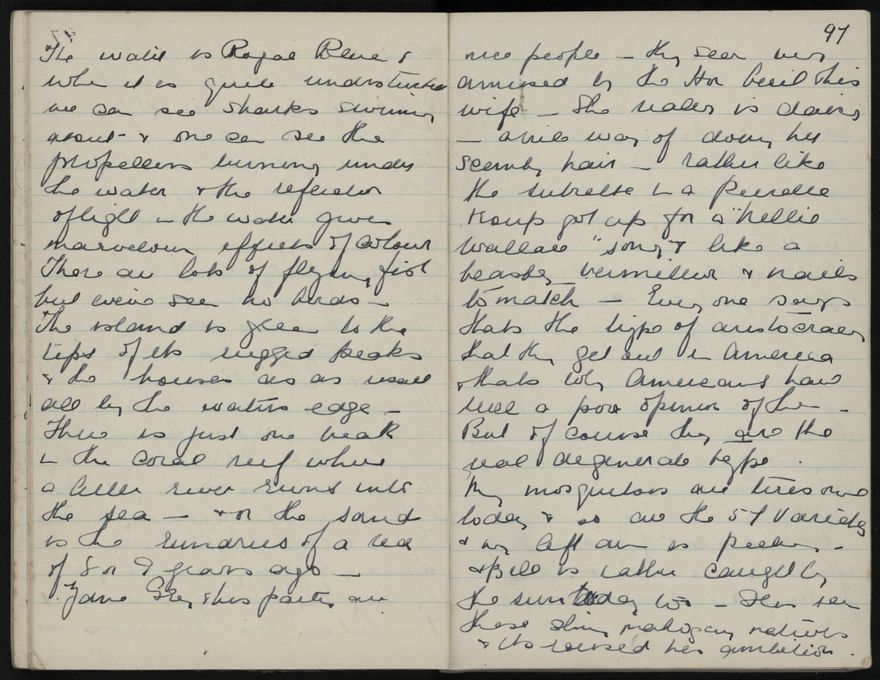 The water is Royal Blue &
when it is quite undisturbed
we can see sharks swimming
about & one can see the
propellers turning under
the water & the reflection
of light in the water gives
marvelous effects of colour
There are lots of flying fish
but we've seen no birds -
The island is green to the
tips of its rugged peaks
& the houses are as usual
all by the waters edge -
There is just one break
in the coral reef where
a little river runs into
the sea - & on the sand
is the remains of a
of 8 or 9 years ago -
Zane Grey & his party are
97
nice people - they seem very
amused by the Hon Cecil & his
wife - She is
- a way of doing her
hair - rather like
the in a Pierrette
Troup got up for a "Nellie
Wallace" song & like a
beastly vermillion & nails
to match - Every one says
thats the type of aristocracy
that they get out in America
& thats why Americans have
such a poor opinion of them -
But of course they are the
real degenerate type.
My mosquitoes are tiresome
today & so are the 57 Varieties
& my left arm is peeling -
& Bill is rather caught by
the sun today too - Hes seen
these shiny mahogany natives
& its roused his ambition.